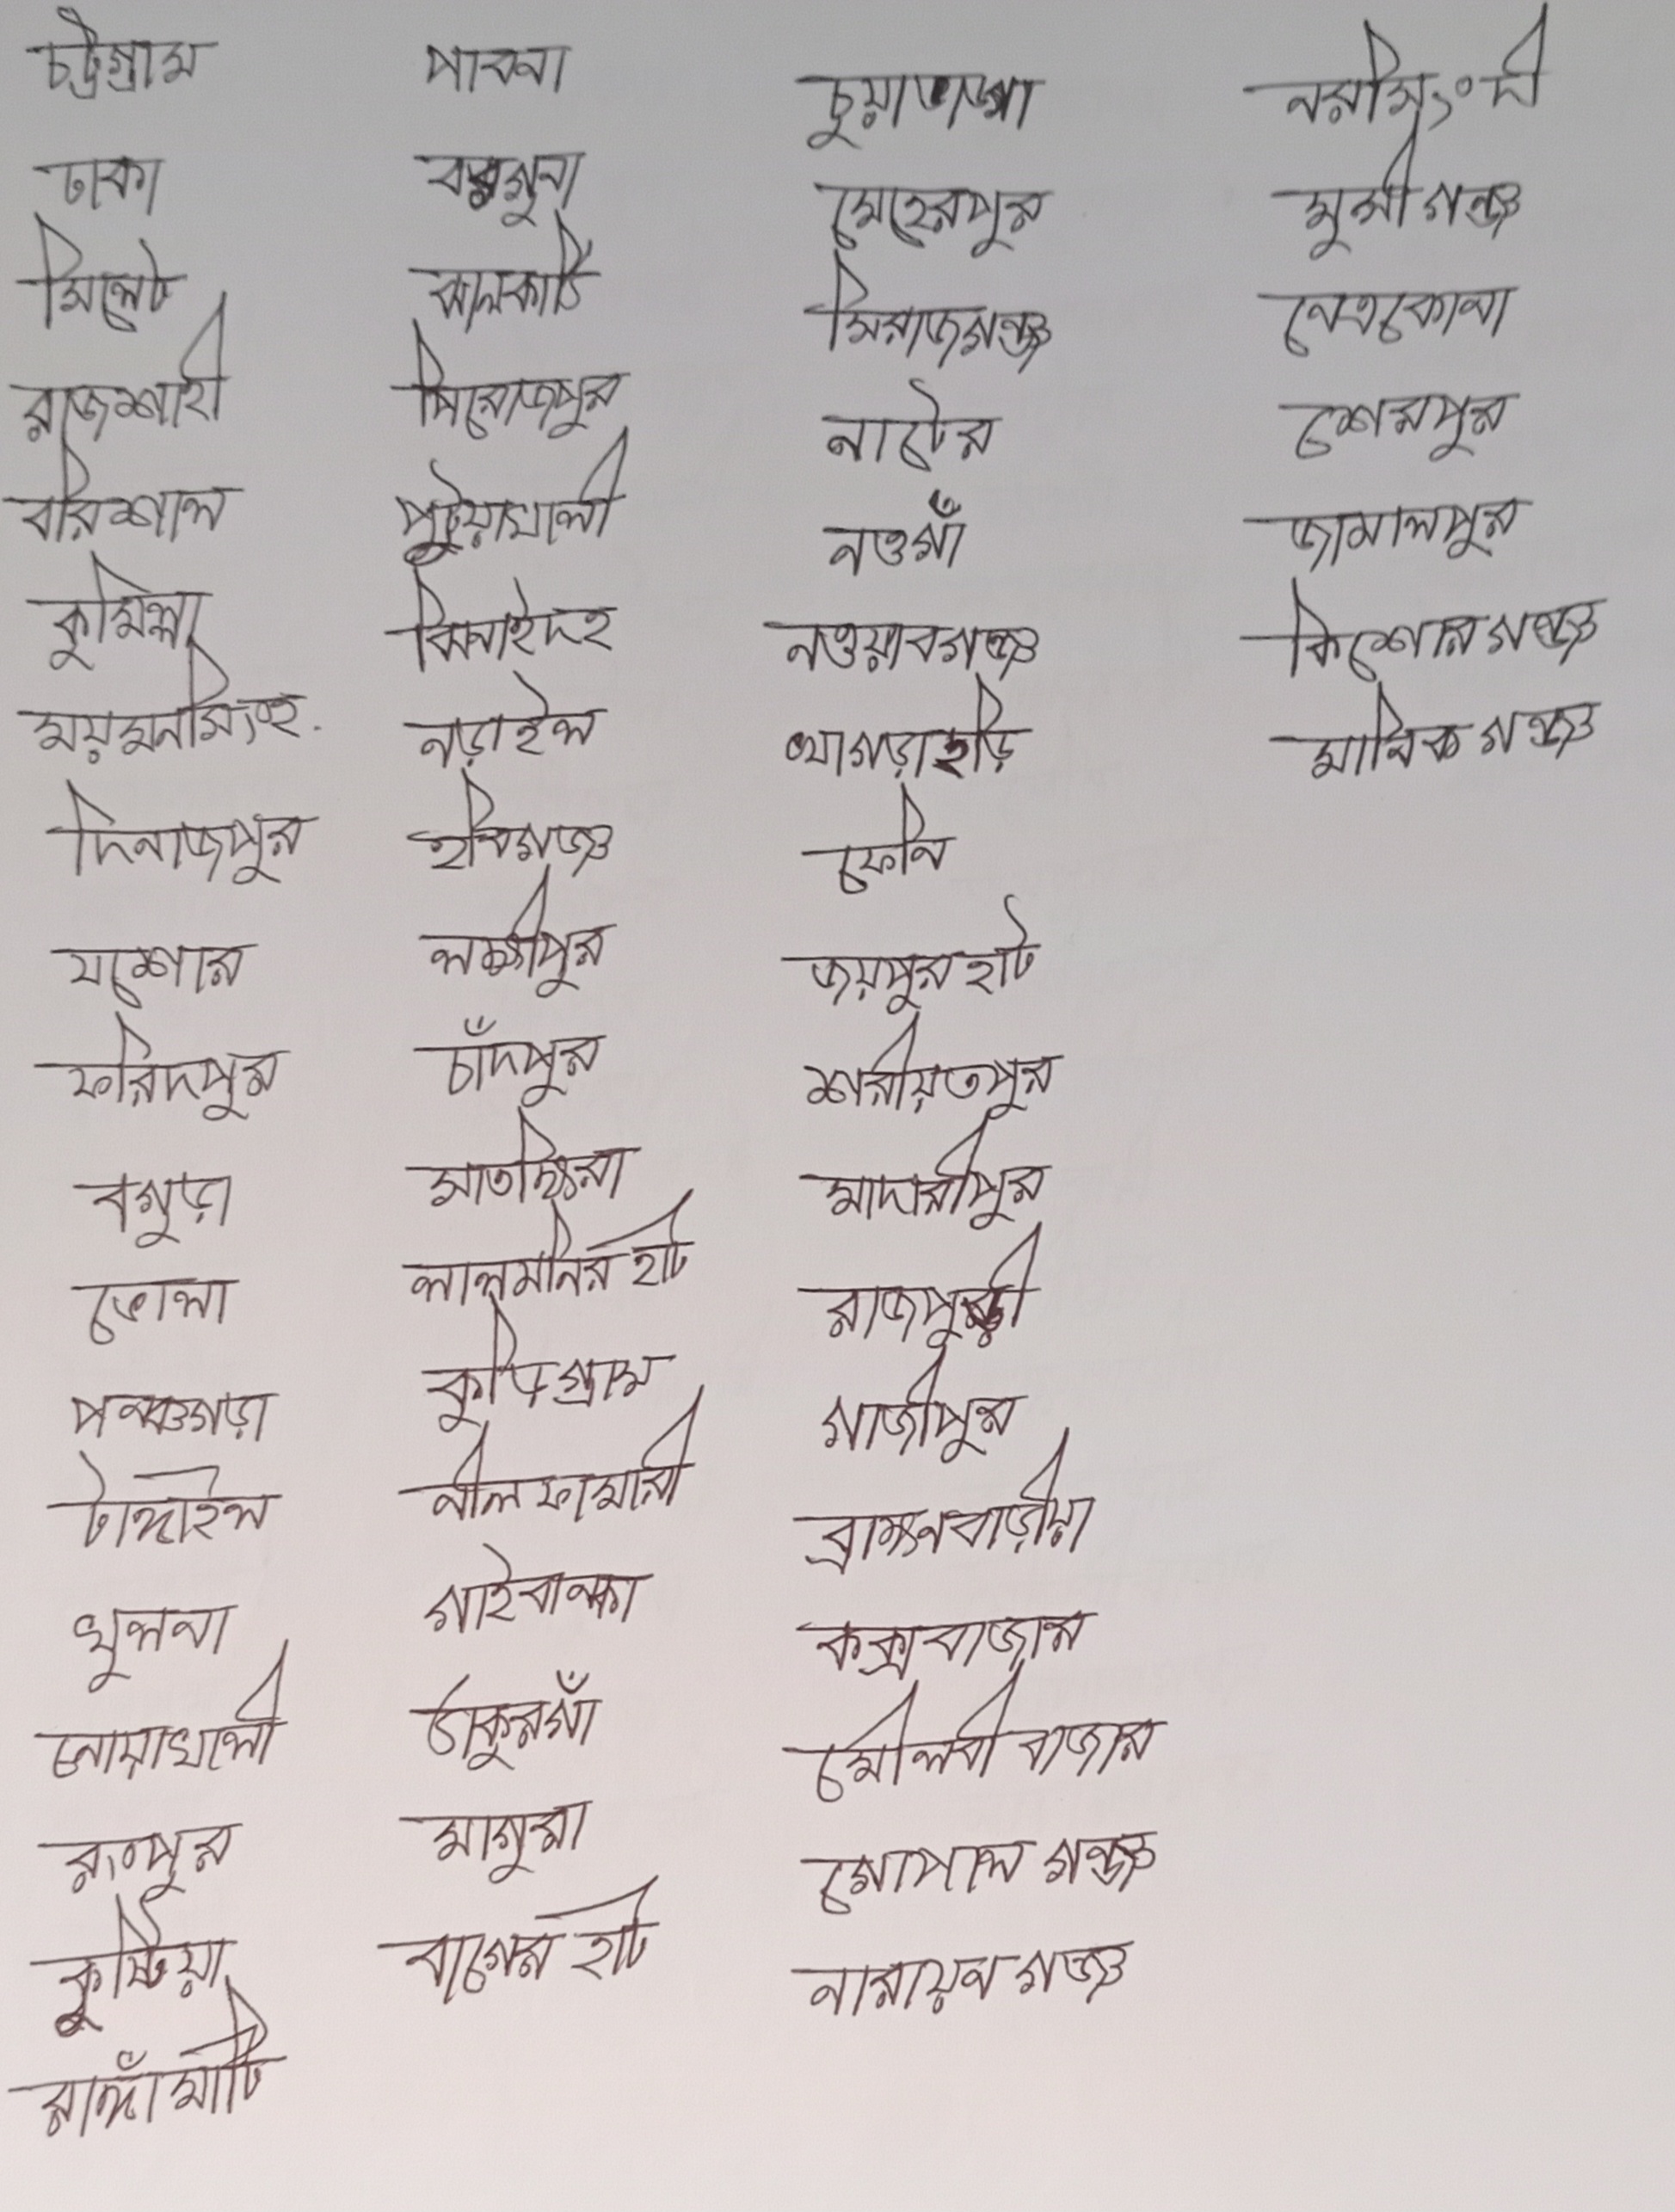 চট্টগ্রাম
ঢাকা
সিলেট
রাজশাহী
বরিশাল
কুমিল্লা
ময়মনসিংহ
দিনাজপুর
যশোর
ফরিদপুর
বগুড়া
ভোলা
পনঞ্চগড়া
টাঙ্গাইল
খুলনা
নোয়াখালী
রংপুর
কুষ্টিয়া
রাঙ্গাঁমাটি
পাবনা
বরগুনা
ঝালকাঠি
পিরোজপুর
পটুয়াখালী
ঝিনাইদহ
নড়াইল
হবিগঞ্জ
লক্ষীপুর
চাঁদপুর
সাতক্ষিরা
লালমনির হাট
কুড়িগ্রাম
নীলফামারী
গাইবান্ধা
ঠাকুরগাঁ
মাগুরা
বাগের হাট
চুয়াডাঙ্গা
মেহেরপুর
সিরাজগঞ্জ
নাটোর
নওগাঁ
নওয়াবগঞ্জ
খাগড়াছড়ি
ফেনি
জয়পুর হাট
শরীয়তপুর
মাদারীপুর
গাজীপুর
ব্রাহ্মনবাড়ীয়া
কক্সবাজার
মৌলবী বাজার
গোপাল গঞ্জ
নারায়ন গঞ্জ
নরসিংদী
মুন্সীগঞ্জ
নেত্রকোনা
শেরপুর
জামালপুর
কিশোরগঞ্জ
মানিকগঞ্জ